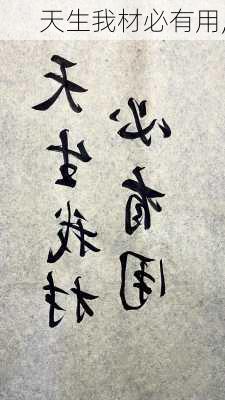 天生我材必有用,
天生我材
必有用